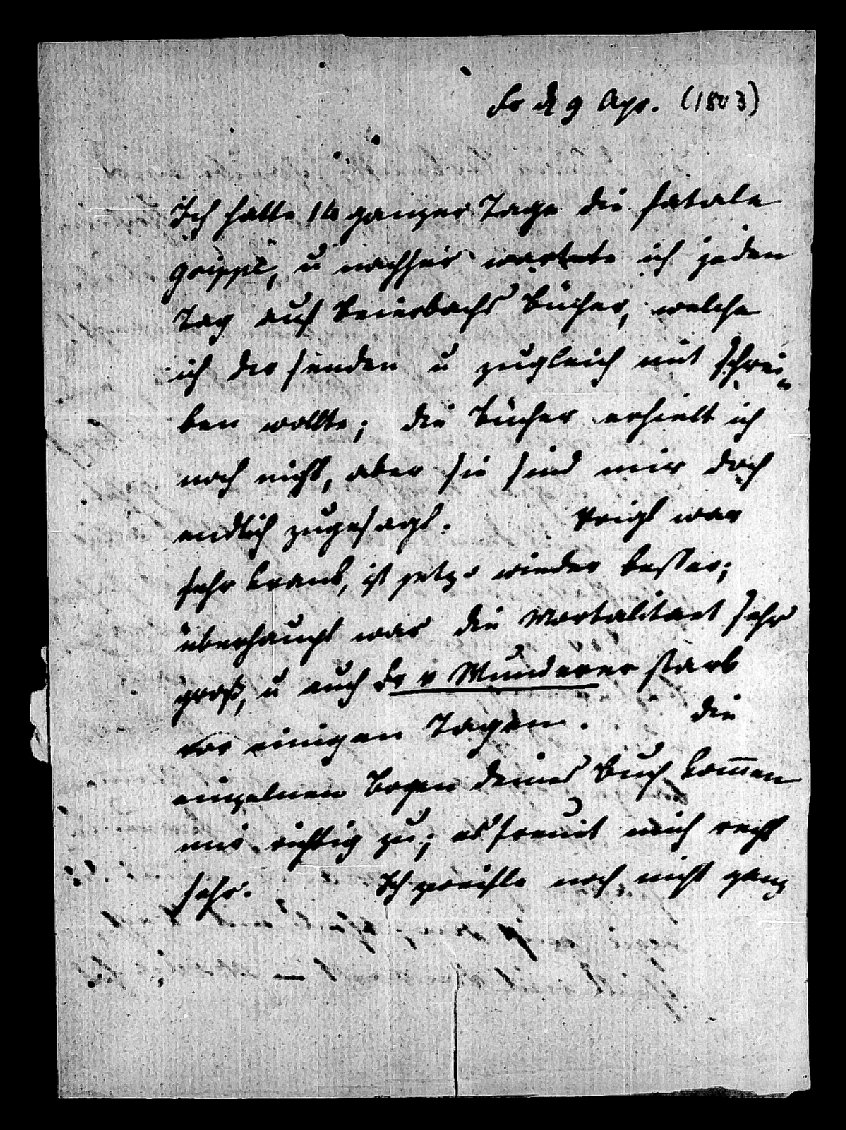 Fr d 9 Apr. (1803)
Ich hatte 14 ganzer Tage die fatale
Grippe, u nachher wartete ich jeden
Tag auf Beierbachs Bücher, welche
ich dir senden u zugleich mit schrei-
ben wollte; die Bücher erhielt ich
noch nicht, aber sie sind mir doch
endlich zugesagt. Voigt war
sehr krank, ist jetzo wieder besser;
überhaupt war die Mortalitaet sehr
groß, u auch Fr v Wunderer starb
vor einigen Tagen. die
einzelnen Bogen deines Buch kommen
mir richtig zu; es freuet mich recht
sehr. Ich zweifle noch nicht ganz